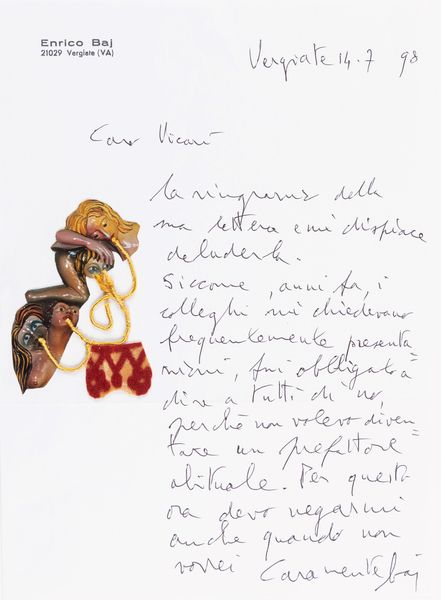 Enrico Baj
21029 Vergiate (VA)
Vergiate 14.7 98
Caro Vicari
la ringrazio della
sua lettera e mi dispiace
deluderla.
Siccome, anni fa, i
colleghi mi chiedevano
frequentemente presenta=
zioni, fui obbligato a
dire a tutti di no,
perchè non volevo diven=
tare un prefattore
abituale. Per questo
ora devo negarmi
anche quando non
vorrei Caramente Baj